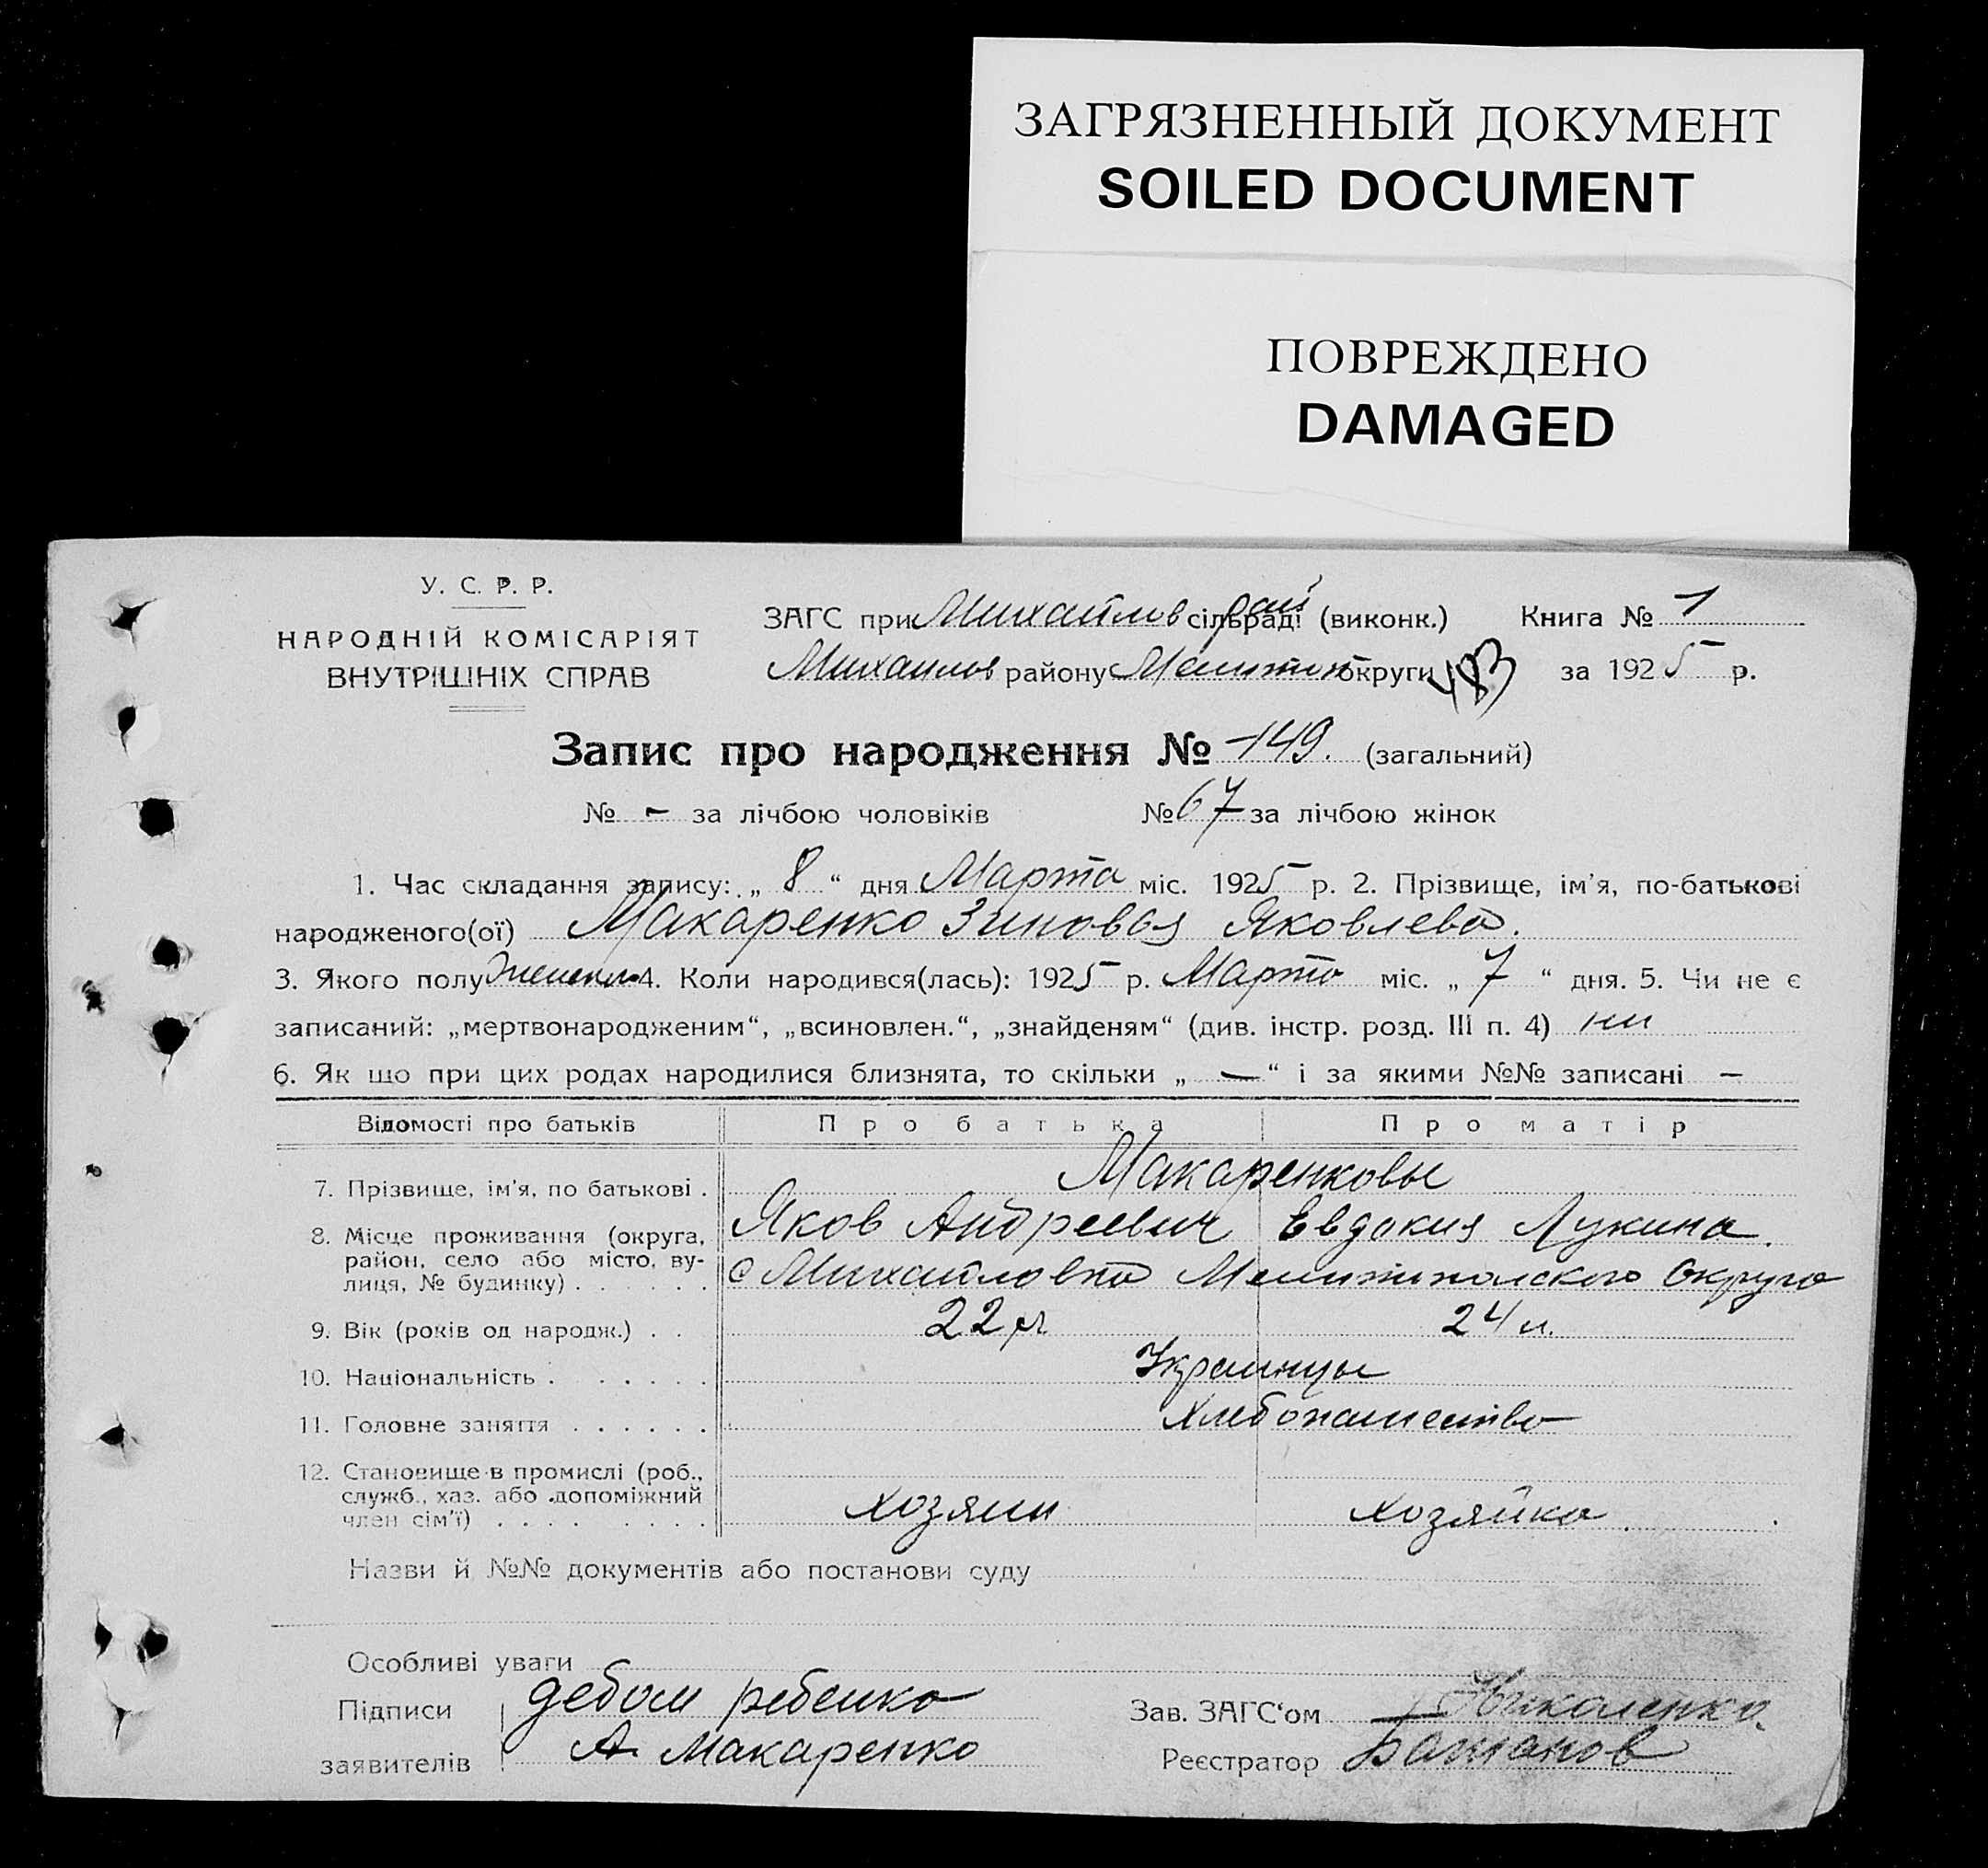 ЗАГРЯЗНЕННЫЙ ДОКУМЕНТ
SOILED DOCUMENT
ПОВРЕЖДЕНО
DAMAGED
У. С. Р. Р.
НАРОДНІЙ КОМІСАРІЯТ
ВНУТРІШНІХ СПРАВ
ЗАГС при Михайлов сільраді рай (виконк.) Книга № 1
Михайлов району Мелитоп округи 183 за 1925 р.
Запис про народження № 149. (загальний)
№ - за лічбою чоловіків № 67 за лічбою жінок
1. Час складання запису: „ 8 “ дня Марта міс. 1925 р. 2. Прізвище, ім'я, по-батькові
народженого(ої) Макаренко Зиновья Яковлева.
3. Якого полу 4. Коли народився(лась): 1925 р. Марта міс. „ 7 “ дня. 5. Чи не є
записаний: „мертвонародженим“, „всиновлен.“, „знайденям“ (див. інстр. розд. III п. 4) ни
6. Як що при цих родах народилися близнята, то скільки „ — “ і за якими №№ записані —
Відомості про батьків Про батька Про матір
7. Прізвище, ім'я, по батькові . Макаренковы
Яков Андреевич Евдокия Лукина.
8. Місце проживання (округа,
район, село або місто, ву-
лиця, № будинку) . . . . . . с Михайловка Мелитопольского Округа
9. Вік (років од народж.) . . 22 л 24 л.
10. Національність . . . . . . . Украинцы
11. Головне заняття . . . . . . Хлебопашество
12. Становище в промислі (роб.,
служб., хаз. або допоміжний
член сім'ї) . . . . . . . . хозяин хозяйка.
Назви й №№ документів або постанови суду
Особливі уваги
Підписи дедом ребенка Зав. ЗАГС'ом Николенко.
заявителів А. Макаренко Реєстратор Бажанов